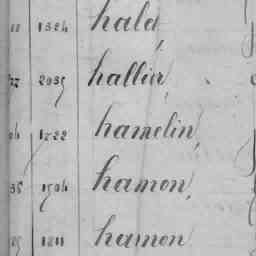 1524 hald,
2035 hallier,
1222 hamelin,
1504 hamon,
1811 hamon